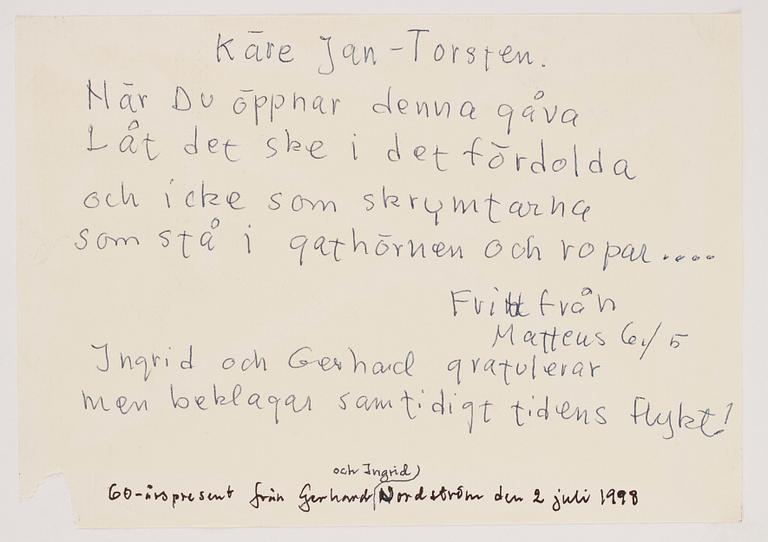 Käre Jan-Torsten.
När Du öppnar denna gåva
Låt det ske i det fördolda
och icke som skrymtarna
som stå i gathörnen och ropar.....
Fritt från
Matteus 6/5
Ingrid och Gerhard gratulerar
men beklagar samtidigt tidens flykt!
och Ingrid)
60-årspresent från Gerhard Nordström den 2 juli 1998